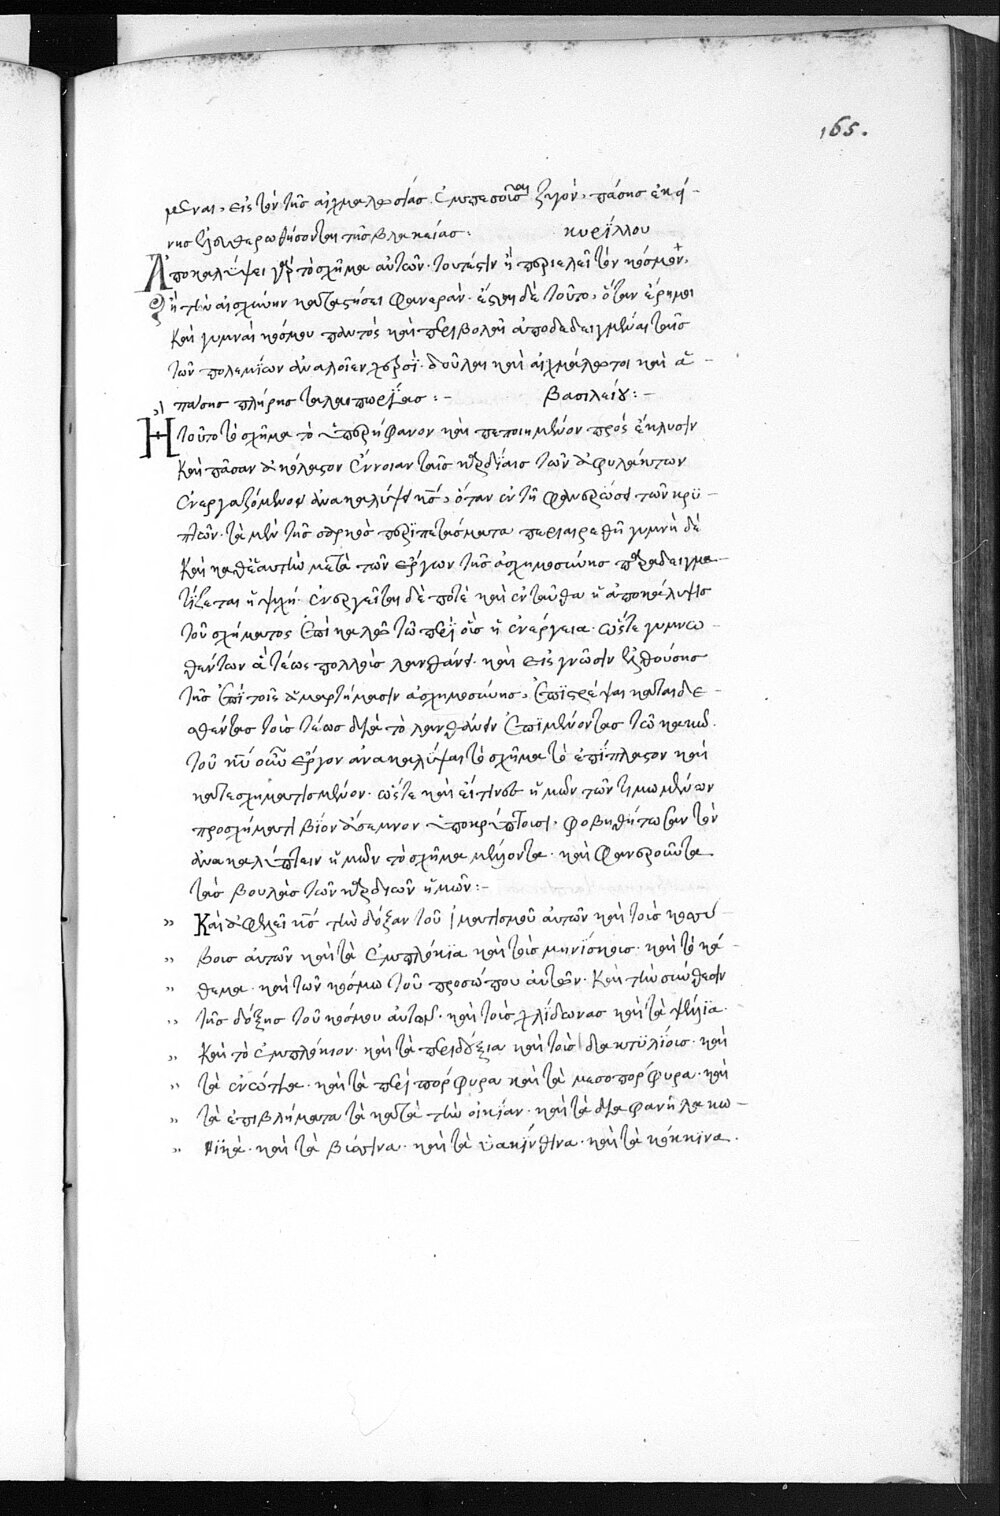 165.
μεναι, εἰς τὸν τῆς αἰχμαλωσίας ἐμπεσοῦσαι ζυγόν, πάσης ἐκεί-
νης ἐλευθερωθήσονται τῆς βλακείας: κυρίλλου
Ἀποκαλύψει γὰρ τὸ σχῆμα αὐτῶν. τουτέστιν ἢ περιελεῖ τὸν κόσμον,
ἢ τὴν αἰσχύνην καταστήσει φανεράν. ἔσται δὲ τοῦτο, ὅταν ἔρημοι
καὶ γυμναὶ κόσμου παντὸς καὶ περιβολῆς ἀποδεδειγμέναι ταῖς
τῶν πολεμίων ἁλοῖεν χερσί. δοῦλαι καὶ αἰχμάλωτοι καὶ ἁ-
πάσης πλήρης ταλαιπωρίας:- βασιλείου:-
Ἢ τοῦτο τὸ σχῆμα τὸ ὑπερήφανον καὶ πεποιημένον πρὸς ἔκλυσιν
καὶ πᾶσαν ἀκόλαστον ἔννοιαν ταῖς καρδίαις τῶν ἀφυλάκτων
ἐνεργαζόμενον ἀνακαλύψει κς, ὅταν ἐν τῇ φανερώσει τῶν κρυ-
πτῶν. τὰ μὲν τῆς σαρκὸς περιπετάσματα περιαιρεθῇ γυμνὴ δὲ
καὶ καθ' ἑαυτὴν μετὰ τῶν ἔργων τῆς ἀσχημοσύνης παραδειγμα-
τίζεται ἡ ψυχή. ἐνεργεῖται δὲ ποτὲ καὶ ἐνταῦθα ἡ ἀποκάλυψις
τοῦ σχήματος ἐπὶ καλῷ τῷ περὶ οὓς ἡ ἐνέργεια. ὥστε γυμνω-
θέντων ἃ τέως πολλοὺς λανθάνει. καὶ εἰς γνῶσιν ἐλθούσης
τῆς ἐπὶ τοῖς ἁμαρτήμασιν ἀσχημοσύνης, ἐπιστρέψαι καταιδε-
σθέντας τοὺς τέως διὰ τὸ λανθάνειν ἐπιμένοντας τῷ κακῷ.
τοῦ κυ οὖν ἔργον ἀνακαλύψαι τὸ σχῆμα τὸ ἐπίπλαστον καὶ
κατεσχηματισμένον. ὥστε καὶ εἴ τινες ἡμῶν τῶν τιμωμένων
προσχήματι βίον ἄσεμνον ὑποκρύπτοισι. φοβηθήτωσαν τὸν
ἀνακαλύπτειν ἡμῶν τὸ σχῆμα μέλλοντα. καὶ φανεροῦντα
τὰς βουλὰς τῶν καρδιῶν ἡμῶν:-
" Καὶ ἀφελεῖ κς τὴν δόξαν τοῦ ἱματισμοῦ αὐτῶν καὶ τοὺς κοσύ-
" βους αὐτῶν καὶ τὰ ἐμπλόκια καὶ τοὺς μηνίσκους. καὶ τὸ κά-
" θεμα. καὶ τὸν κόσμον τοῦ προσώπου αὐτῶν. καὶ τὴν σύνθεσιν
" τῆς δόξης τοῦ κόσμου αὐτῶν. καὶ τοὺς χλίδωνας καὶ τὰ ψέλια.
" καὶ τὸ ἐμπλόκιον. καὶ τὰ περιδέξια καὶ τοὺς δακτυλίους. καὶ
" τὰ ἐνώτια. καὶ τὰ περιπόρφυρα καὶ τὰ μεσοπόρφυρα. καὶ
" τὰ ἐπιβλήματα τὰ κατὰ τὴν οἰκίαν. καὶ τὰ διαφανῆ λακω-
" νικὰ. καὶ τὰ βύσσινα. καὶ τὰ ὑακίνθινα. καὶ τὰ κόκκινα.